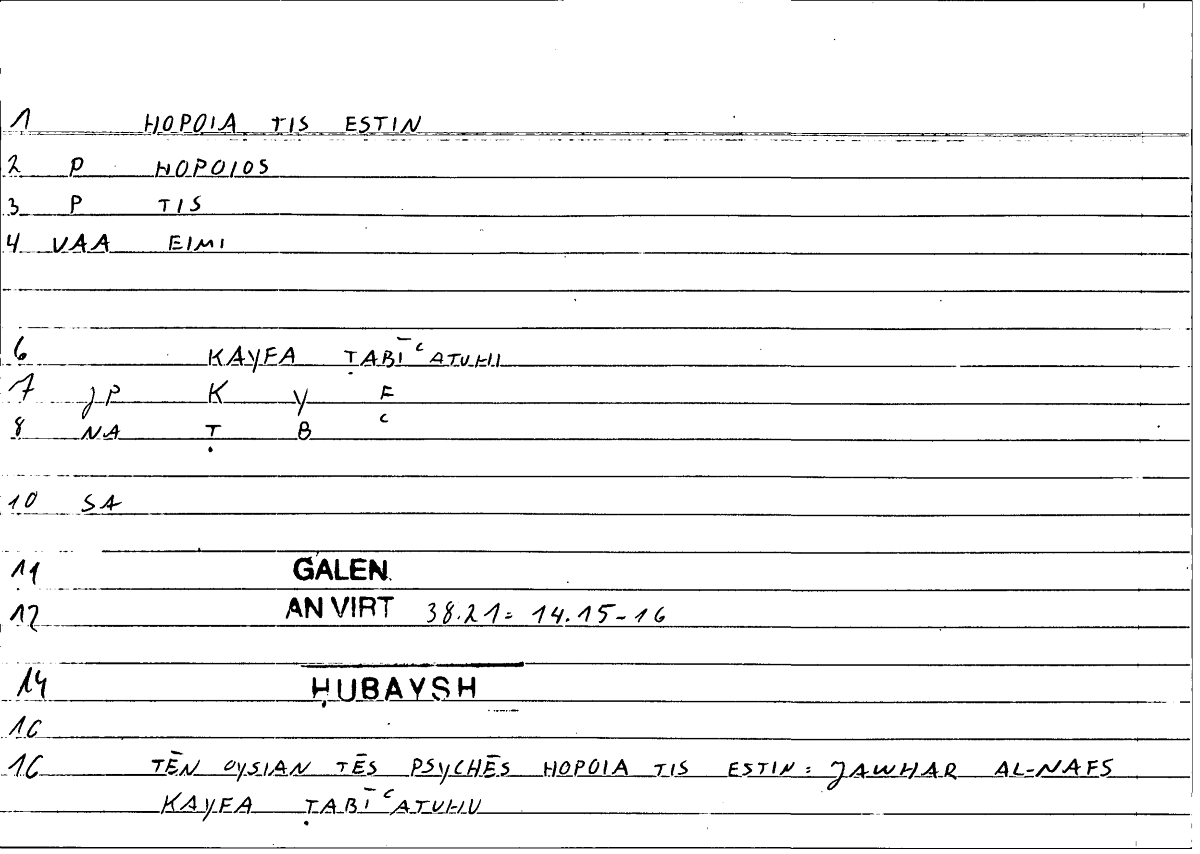 1 HOPOIA TIS ESTIN
2 P HOPOIOS
3 P TIS
4 VAA EIMI
6 KAYFA ṬABĪʿATUHU
7 JP K Y F
8 NA Ṭ B ʿ
10 SA
11 GALEN
12 AN VIRT 38.21= 14.15-16
14 ḤUBAYSH
16
16 TĒN OYSIAN TĒS PSYCHĒS HOPOIA TIS ESTIN: JAWHAR AL-NAFS
KAYFA ṬABĪʿATUHU